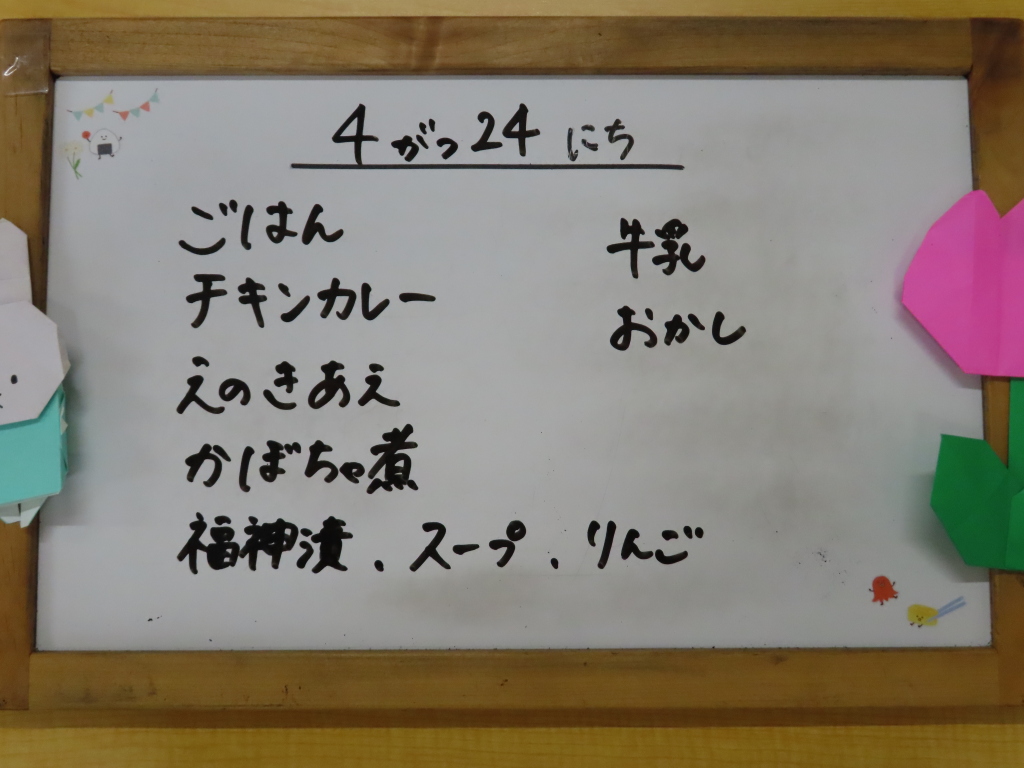 4がつ24にち
ごはん
チキンカレー
えのきあえ
かぼちゃ煮
福神漬、スープ、りんご
牛乳
おかし